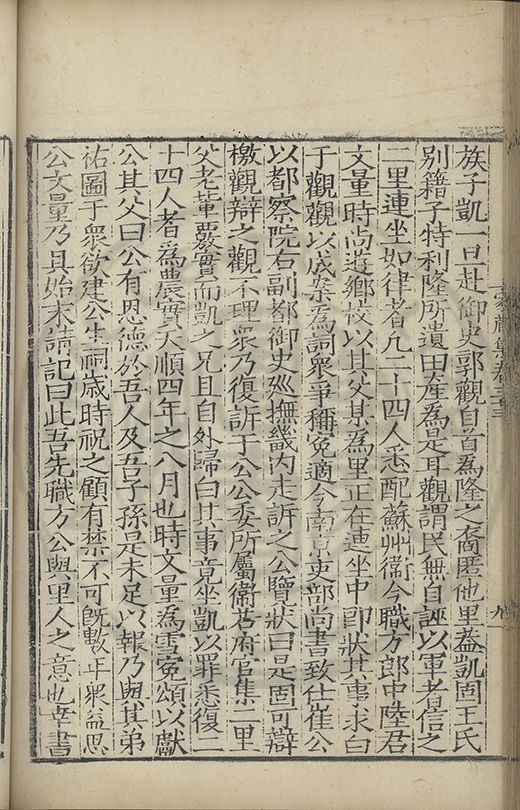 族子凱一旦赴御史郭觀自首為隆之裔匿他里葢凱固王氏
別籍子特利隆所遺田產為是耳觀謂民無自誣以軍者信之
二里連坐如律者凡二十四人悉配蘇州衞今職方郎中陸君
文量時尚遊鄉校以其父某為里正在連坐中卽狀其事求白
于觀觀以成案為詞衆爭稱冤適今南京吏部尚書致仕崔公
以都察院右副都御史廵撫畿內走訴之公覽狀曰是固可辯
檄觀辯之觀不理衆乃復訴于公公委所屬衞若府官集二里
父老輩覈實而凱之兄且自外歸白其事竟坐凱以罪悉復二
十四人者為農實天順四年之八月也時文量為雪冤頌以獻
公其父曰公有恩德於吾人及吾子孫是未足以報乃與其弟
祐圖于衆欲建公生祠歲時祝之顧有禁不可旣數年衆益思
公文量乃具始末請記曰此吾先職方公與里人之意也幸書
家藏集卷三十三
九